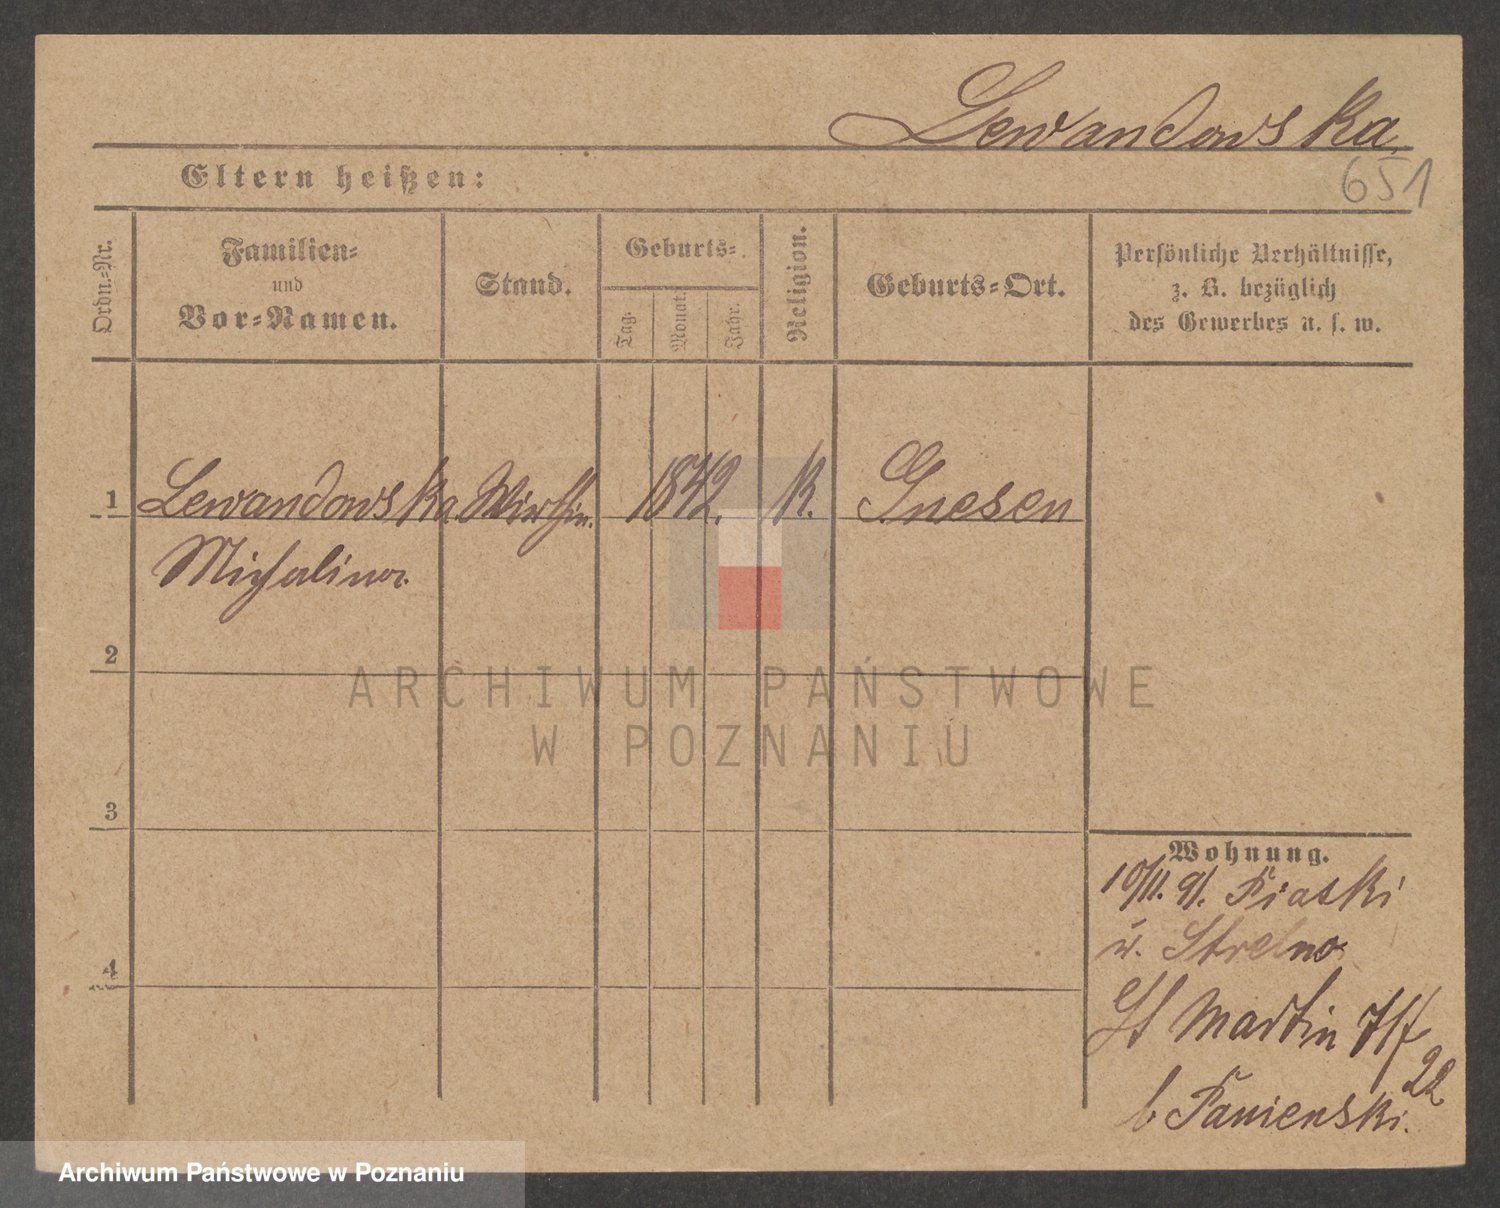 Lewandowska
651
Eltern heißen:
Ordn.-Nr.
Familien-
und
Vor-Namen.
Stand.
Geburts-
Tag.
Monat.
Jahr.
Religion.
Geburts-Ort.
Persönliche Verhältnisse,
z. B. bezüglich
des Gewerbes u. s. w.
1 Lewandowska Wirthin. 1842. K. Gnesen
Michalina
2
ARCHIWUM PAŃSTWOWE
W POZNANIU
3
Wohnung.
10/11. 91. Piaski
Strelno
4
St Martin
22
b Panienski.
Archiwum Państwowe w Poznaniu